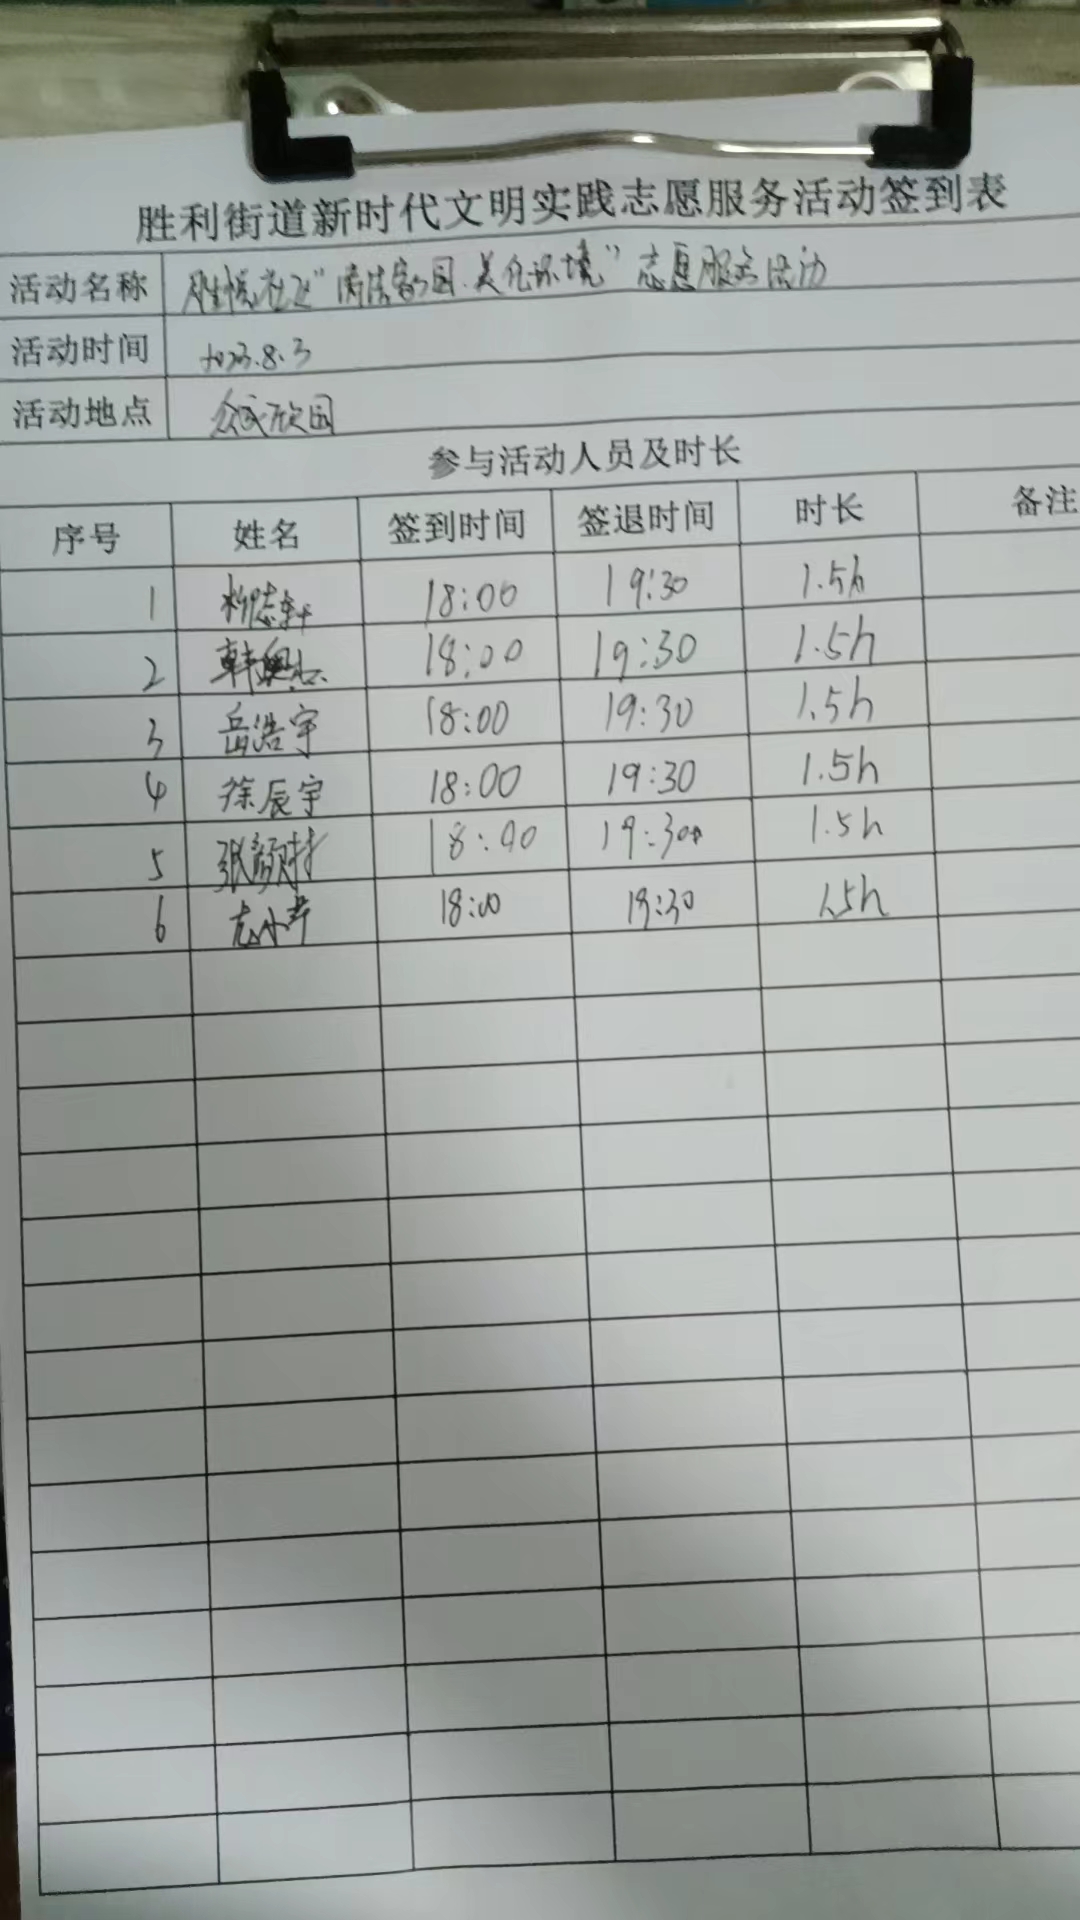 胜利街道新时代文明实践志愿服务活动签到表
活动名称 胜悦社区“清洁家园.美化环境”志愿服务活动
活动时间 2023.8.3
活动地点 众成欣园
参与活动人员及时长
序号 姓名 签到时间 签退时间 时长 备注
1 柳志轩 18:00 19:30 1.5h
2 韩 18:00 19:30 1.5h
3 岳浩宇 18:00 19:30 1.5h
4 徐辰宇 18:00 19:30 1.5h
5 张颢 18:00 19:30 1.5h
6 18:00 19:30 1.5h